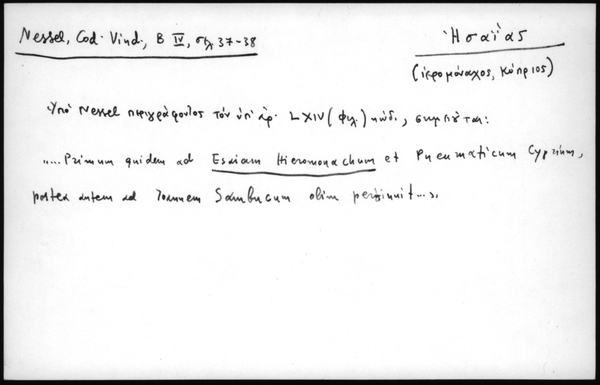 Nessel, Cod. Vind., B IV, σελ. 37-38
Ἡσαΐας
(ἱερομόναχος, Κύπριος)
Ὑπὸ Nessel περιγράφοντος τὸν ὑπ' ἀρ. LXIV (φιλ.) κώδ., σημειοῦται:
"....Primum quidem ad Esaiam Hieromonachum et Pneumaticum Cyprium,
postea autem ad Ioannem Sambucum olim pertinuit...".